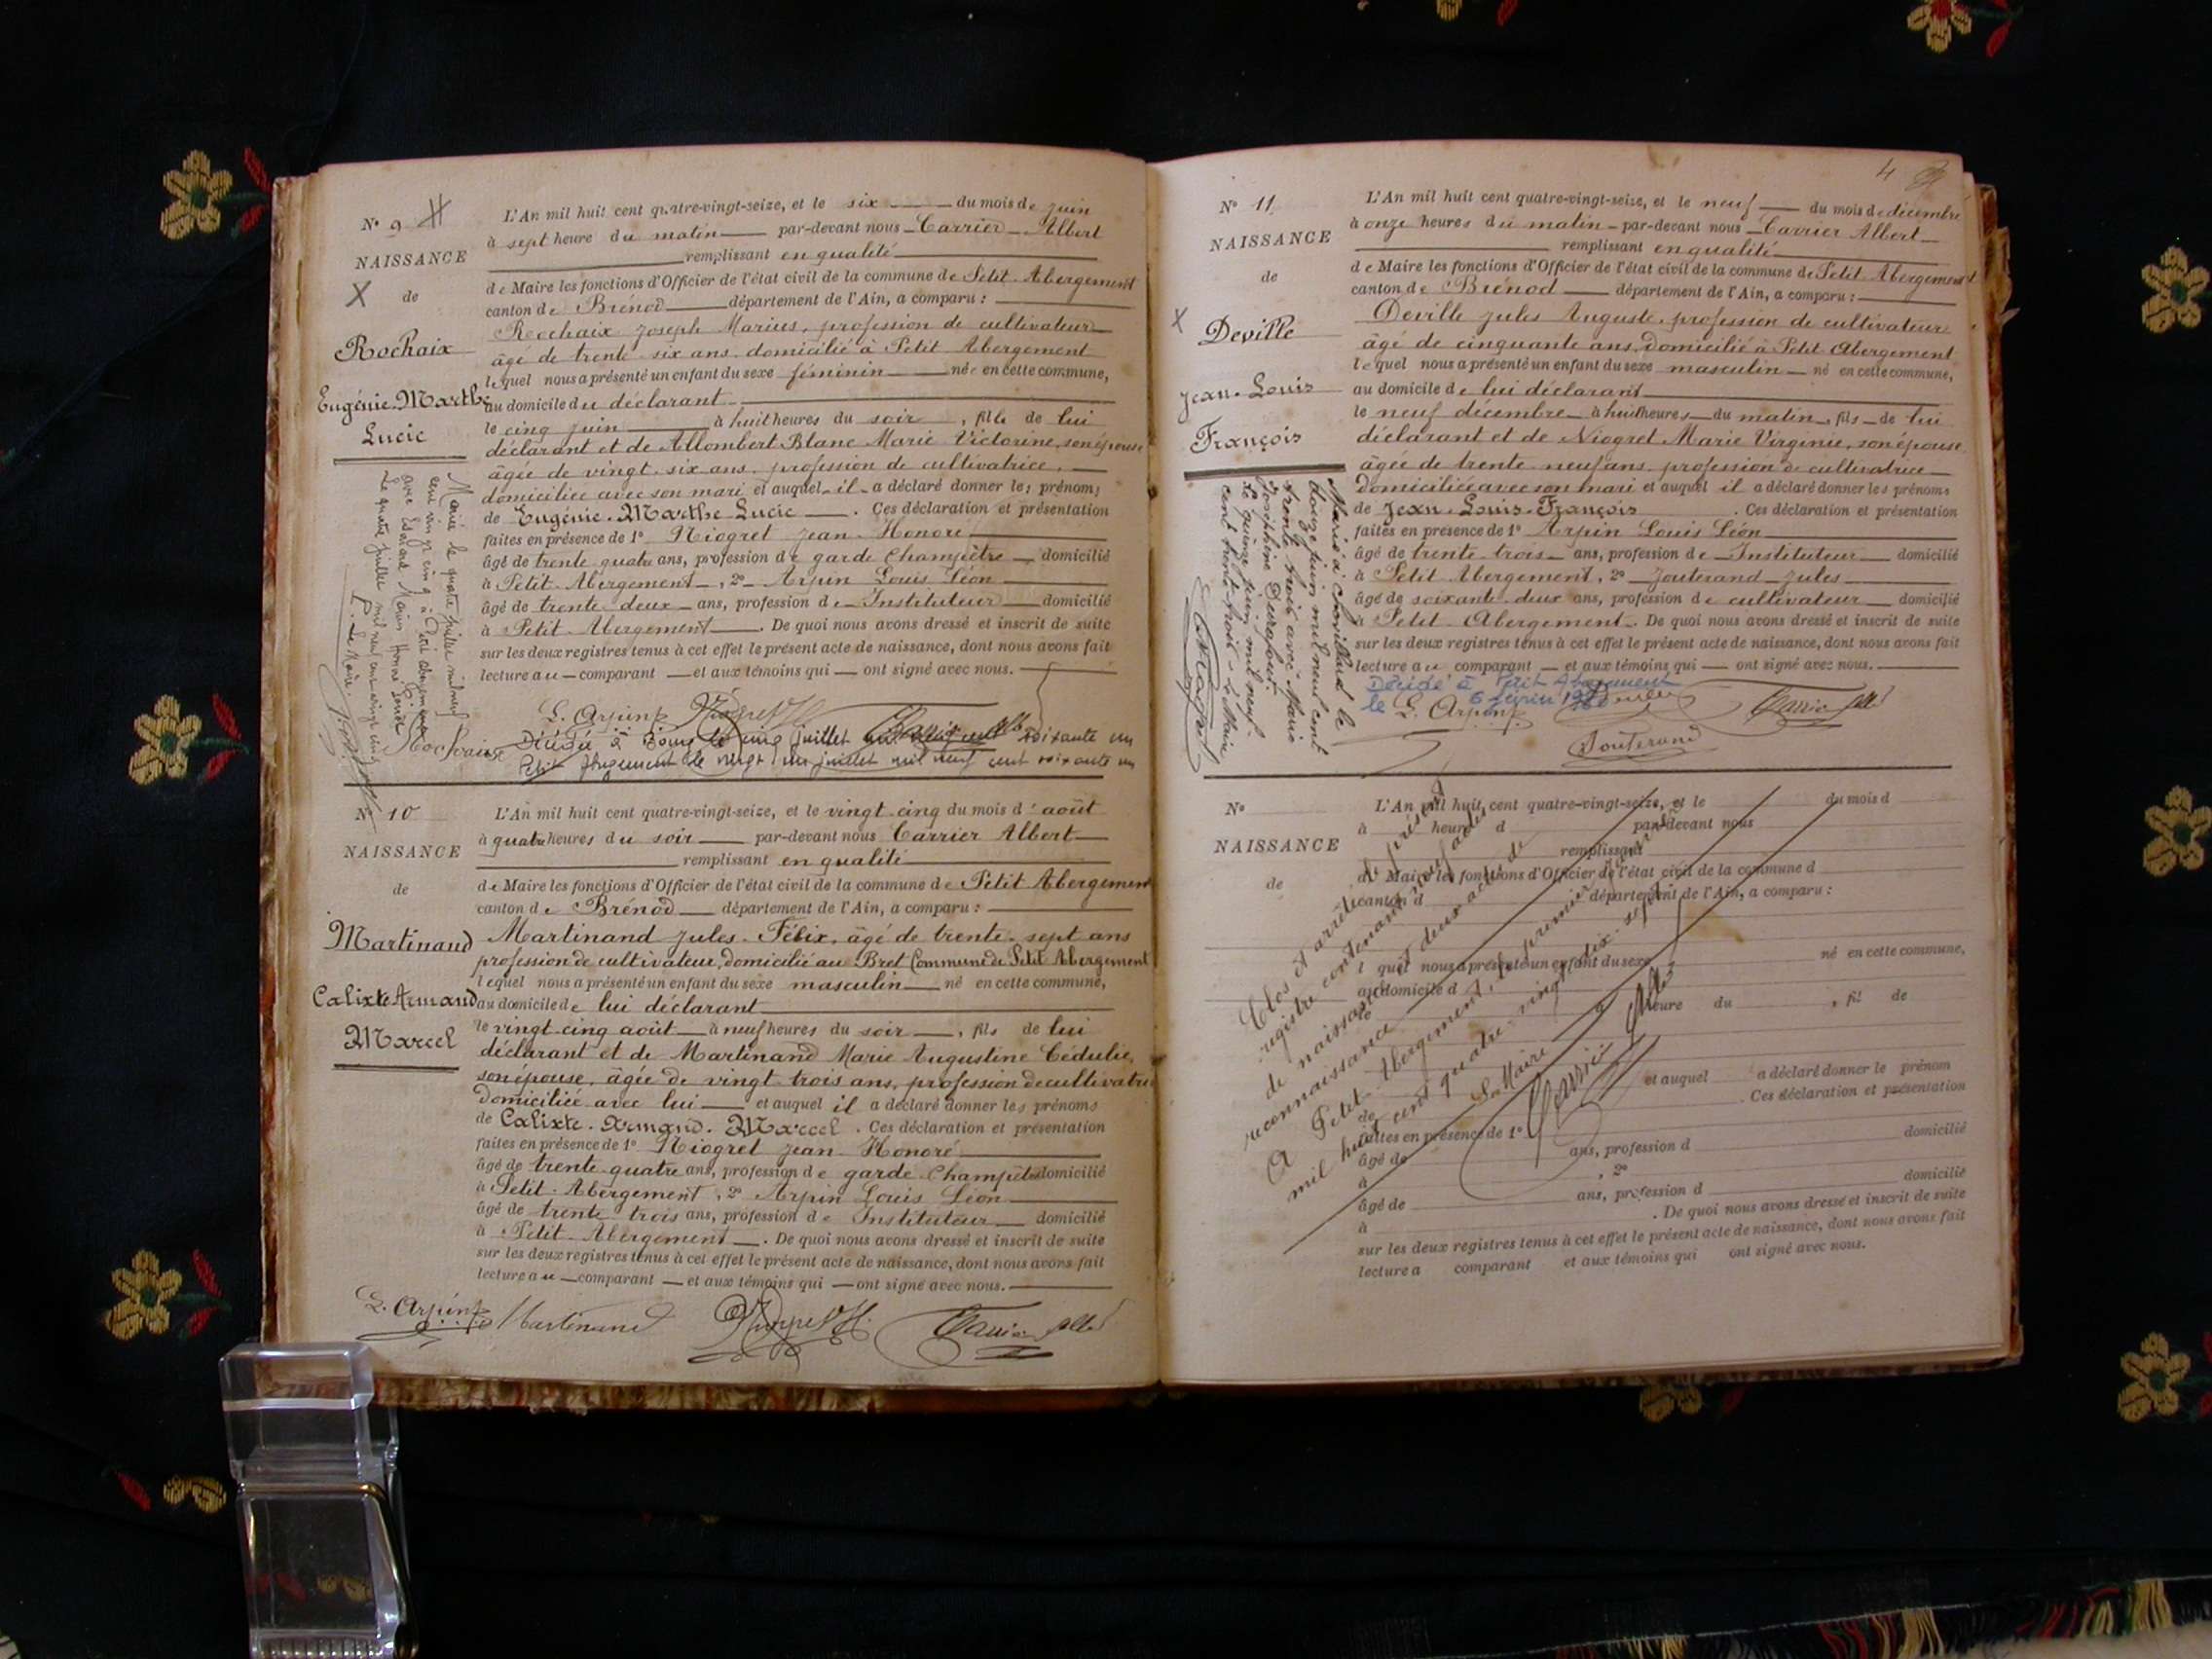 N° 9
NAISSANCE
de
Rochaix
Eugénie-Marthe
Lucie
L'An mil huit cent quatre-vingt-seize, et le six du mois de juin
à sept heure du matin par-devant nous Carrier Albert
remplissant en qualité
de Maire les fonctions d'Officier de l'état civil de la commune de Petit Abergement
canton de Brénod département de l'Ain, a comparu :
Rochaix Joseph Marius, profession de cultivateur
âgé de trente-six ans domicilié à Petit Abergement
lequel nous a présenté un enfant du sexe féminin née en cette commune,
au domicile du déclarant
le cinq juin à huit heures du soir, fille de lui
déclarant et de Allombert-Blanc Marie Victorine, son épouse
âgée de vingt-six ans, profession de cultivatrice,
domiciliée avec son mari et auquel il a déclaré donner les prénoms
de Eugénie-Marthe-Lucie. Ces déclaration et présentation
faites en présence de 1° Niogret Jean-Honoré
âgé de trente quatre ans, profession de garde Champêtre domicilié
à Petit-Abergement, 2° Arpin Louis Léon
âgé de trente-deux ans, profession de Instituteur domicilié
à Petit-Abergement. De quoi nous avons dressé et inscrit de suite
sur les deux registres tenus à cet effet le présent acte de naissance, dont nous avons fait
lecture au comparant et aux témoins qui ont signé avec nous.
Marié le quatre juillet mil neuf
cent vingt cinq à Petit Abergement
avec Marius Honoré
Le quatre juillet mil neuf cent vingt cinq
Le Maire
L. Arpin
Rochaix
juillet soixante un
Petit Abergement le vingt un juillet mil neuf cent soixante un
N° 10
NAISSANCE
de
Martinand
Calixte Armand
Marcel
L'An mil huit cent quatre-vingt-seize, et le vingt-cinq du mois d'août
à quatre heures du soir par-devant nous Carrier Albert
remplissant en qualité
de Maire les fonctions d'Officier de l'état civil de la commune de Petit Abergement
canton de Brénod département de l'Ain, a comparu :
Martinand Jules-Félix, âgé de trente-sept ans
profession de cultivateur, domicilié au Bret Commune de Petit Abergement
lequel nous a présenté un enfant du sexe masculin né en cette commune,
au domicile de lui déclarant
le vingt-cinq août à neuf heures du soir, fils de lui
déclarant et de Martinand Marie Augustine Cédulie,
son épouse, âgée de vingt-trois ans, profession de cultivatrice
domiciliée avec lui et auquel il a déclaré donner les prénoms
de Calixte-Armand-Marcel. Ces déclaration et présentation
faites en présence de 1° Niogret Jean-Honoré
âgé de trente-quatre ans, profession de garde-Champêtre domicilié
à Petit-Abergement, 2° Arpin Louis Léon
âgé de trente trois ans, profession de Instituteur domicilié
à Petit-Abergement. De quoi nous avons dressé et inscrit de suite
sur les deux registres tenus à cet effet le présent acte de naissance, dont nous avons fait
lecture au comparant et aux témoins qui ont signé avec nous.
L. Arpin Martinand
4
N° 11
NAISSANCE
de
Deville
Jean-Louis
François
L'An mil huit cent quatre-vingt-seize, et le neuf du mois de décembre
à onze heures du matin par-devant nous Carrier Albert
remplissant en qualité
de Maire les fonctions d'Officier de l'état civil de la commune de Petit Abergement
canton de Brénod département de l'Ain, a comparu :
Deville Jules Auguste, profession de cultivateur
âgé de cinquante ans, domicilié à Petit Abergement
lequel nous a présenté un enfant du sexe masculin né en cette commune,
au domicile de lui déclarant
le neuf décembre à huit heures du matin, fils de lui
déclarant et de Niogret Marie Virginie, son épouse
âgée de trente-neuf ans, profession de cultivatrice
domiciliée avec son mari et auquel il a déclaré donner les prénoms
de Jean-Louis-François. Ces déclaration et présentation
faites en présence de 1° Arpin Louis Léon
âgé de trente-trois ans, profession de Instituteur domicilié
à Petit Abergement, 2° Jouterand Jules
âgé de soixante-deux ans, profession de cultivateur domicilié
à Petit-Abergement. De quoi nous avons dressé et inscrit de suite
sur les deux registres tenus à cet effet le présent acte de naissance, dont nous avons fait
lecture au comparant et aux témoins qui ont signé avec nous.
Marié à Chevillard le
douze juin mil neuf cent
trente trois avec Marie
Joséphine
Le quinze juin mil neuf
cent trente-trois Le Maire
Décédé à Petit Abergement
le 6 février
L. Arpin
Jouterand
N°
NAISSANCE
de
L'An mil huit cent quatre-vingt-seize, et le du mois d
à heure d par-devant nous
remplissant
de Maire les fonctions d'Officier de l'état civil de la commune d
canton d département de l'Ain, a comparu :
l quel nous a présenté un enfant du sexe né en cette commune,
au domicile d
le à heure du, fil de
et auquel a déclaré donner le prénom
de. Ces déclaration et présentation
faites en présence de 1°
âgé de ans, profession d domicilié
à, 2°
âgé de ans, profession d domicilié
à. De quoi nous avons dressé et inscrit de suite
sur les deux registres tenus à cet effet le présent acte de naissance, dont nous avons fait
lecture a comparant et aux témoins qui ont signé avec nous.
Clos et arrêté le présent
registre contenant neuf actes
de naissance et deux actes de
reconnaissance
A Petit-Abergement, le premier janvier
mil huit cent quatre-vingt-dix-sept.
Le Maire